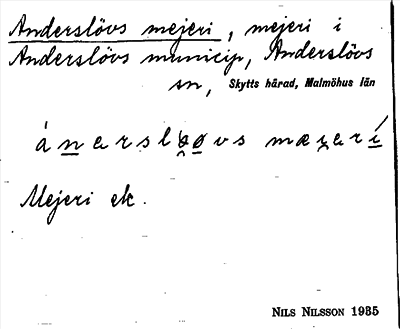 Anderslövs mejeri, mejeri i
Anderslövs municip, Anderslövs
sn, Skytts härad, Malmöhus län
Mejeri ek.
NILS NILSSON 1935